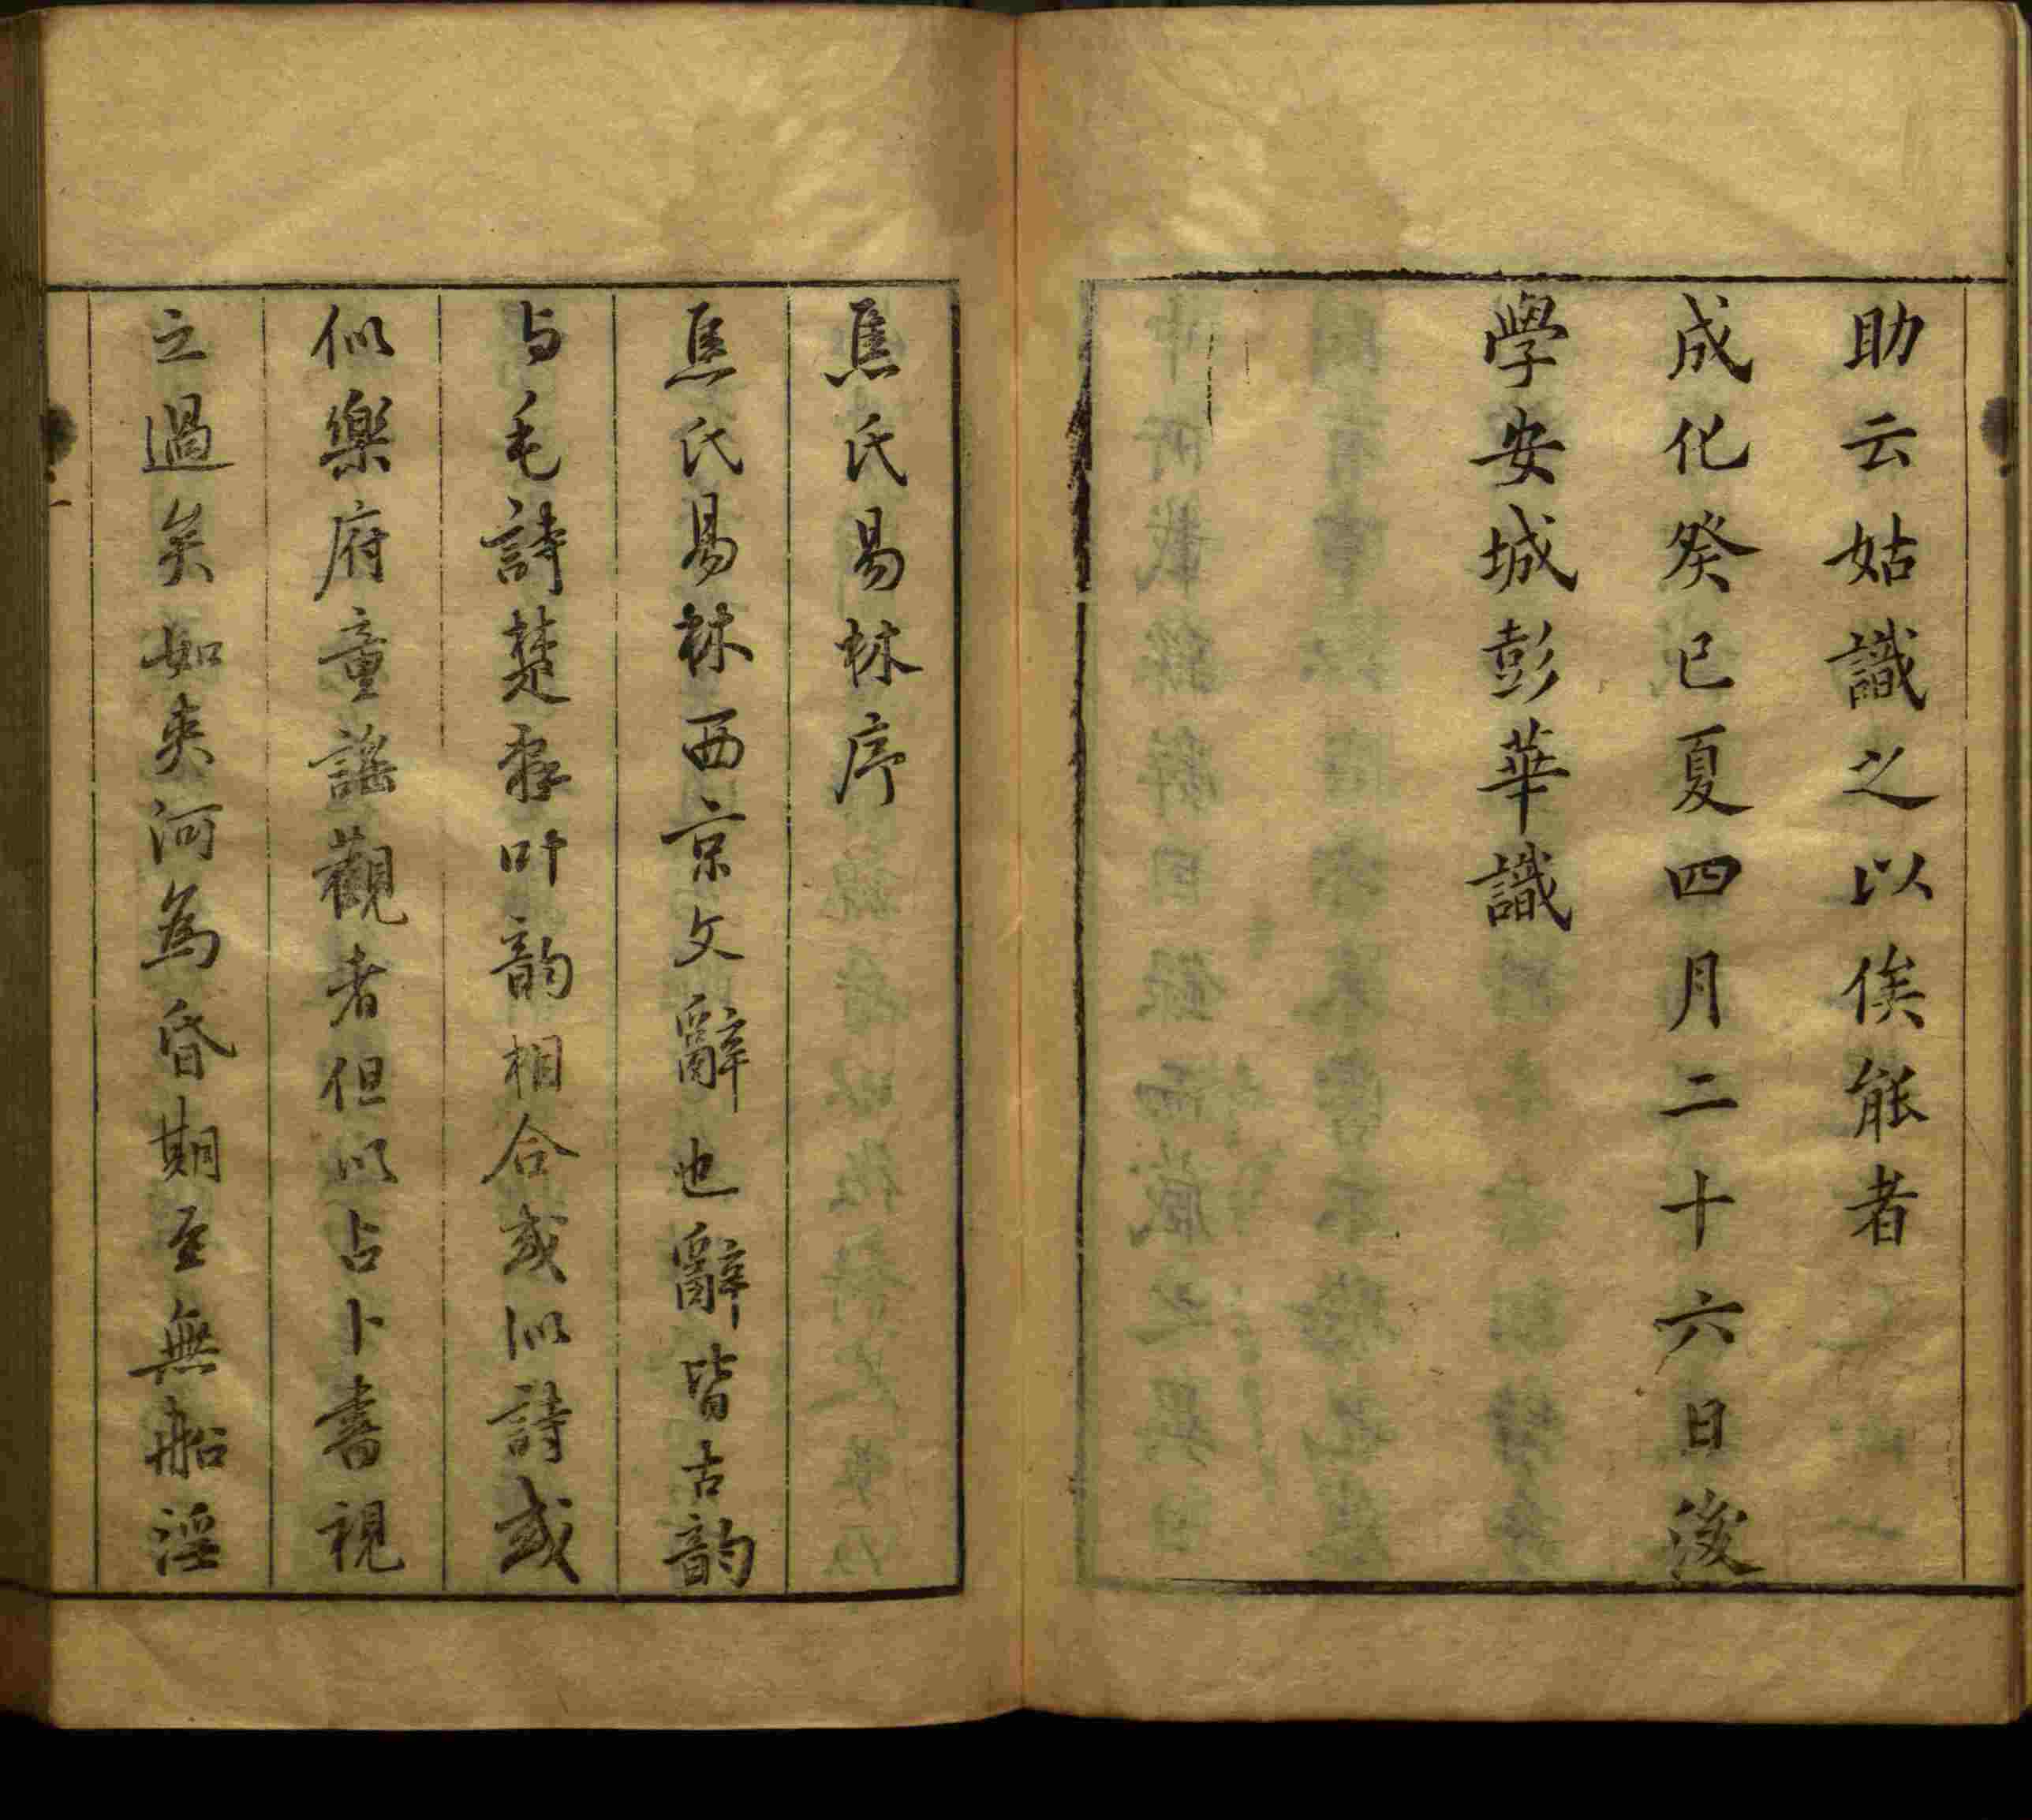 助云姑識之以俟能者
成化癸巳夏四月二十六日後
學安城彭華識
焦氏易林序
焦氏易林西京文辭也辭皆古韵
与毛詩楚辞叶韵相合或似詩或
似樂府童謠觀者但以占卜書視
之過矣如夾河為昏期至無船淫